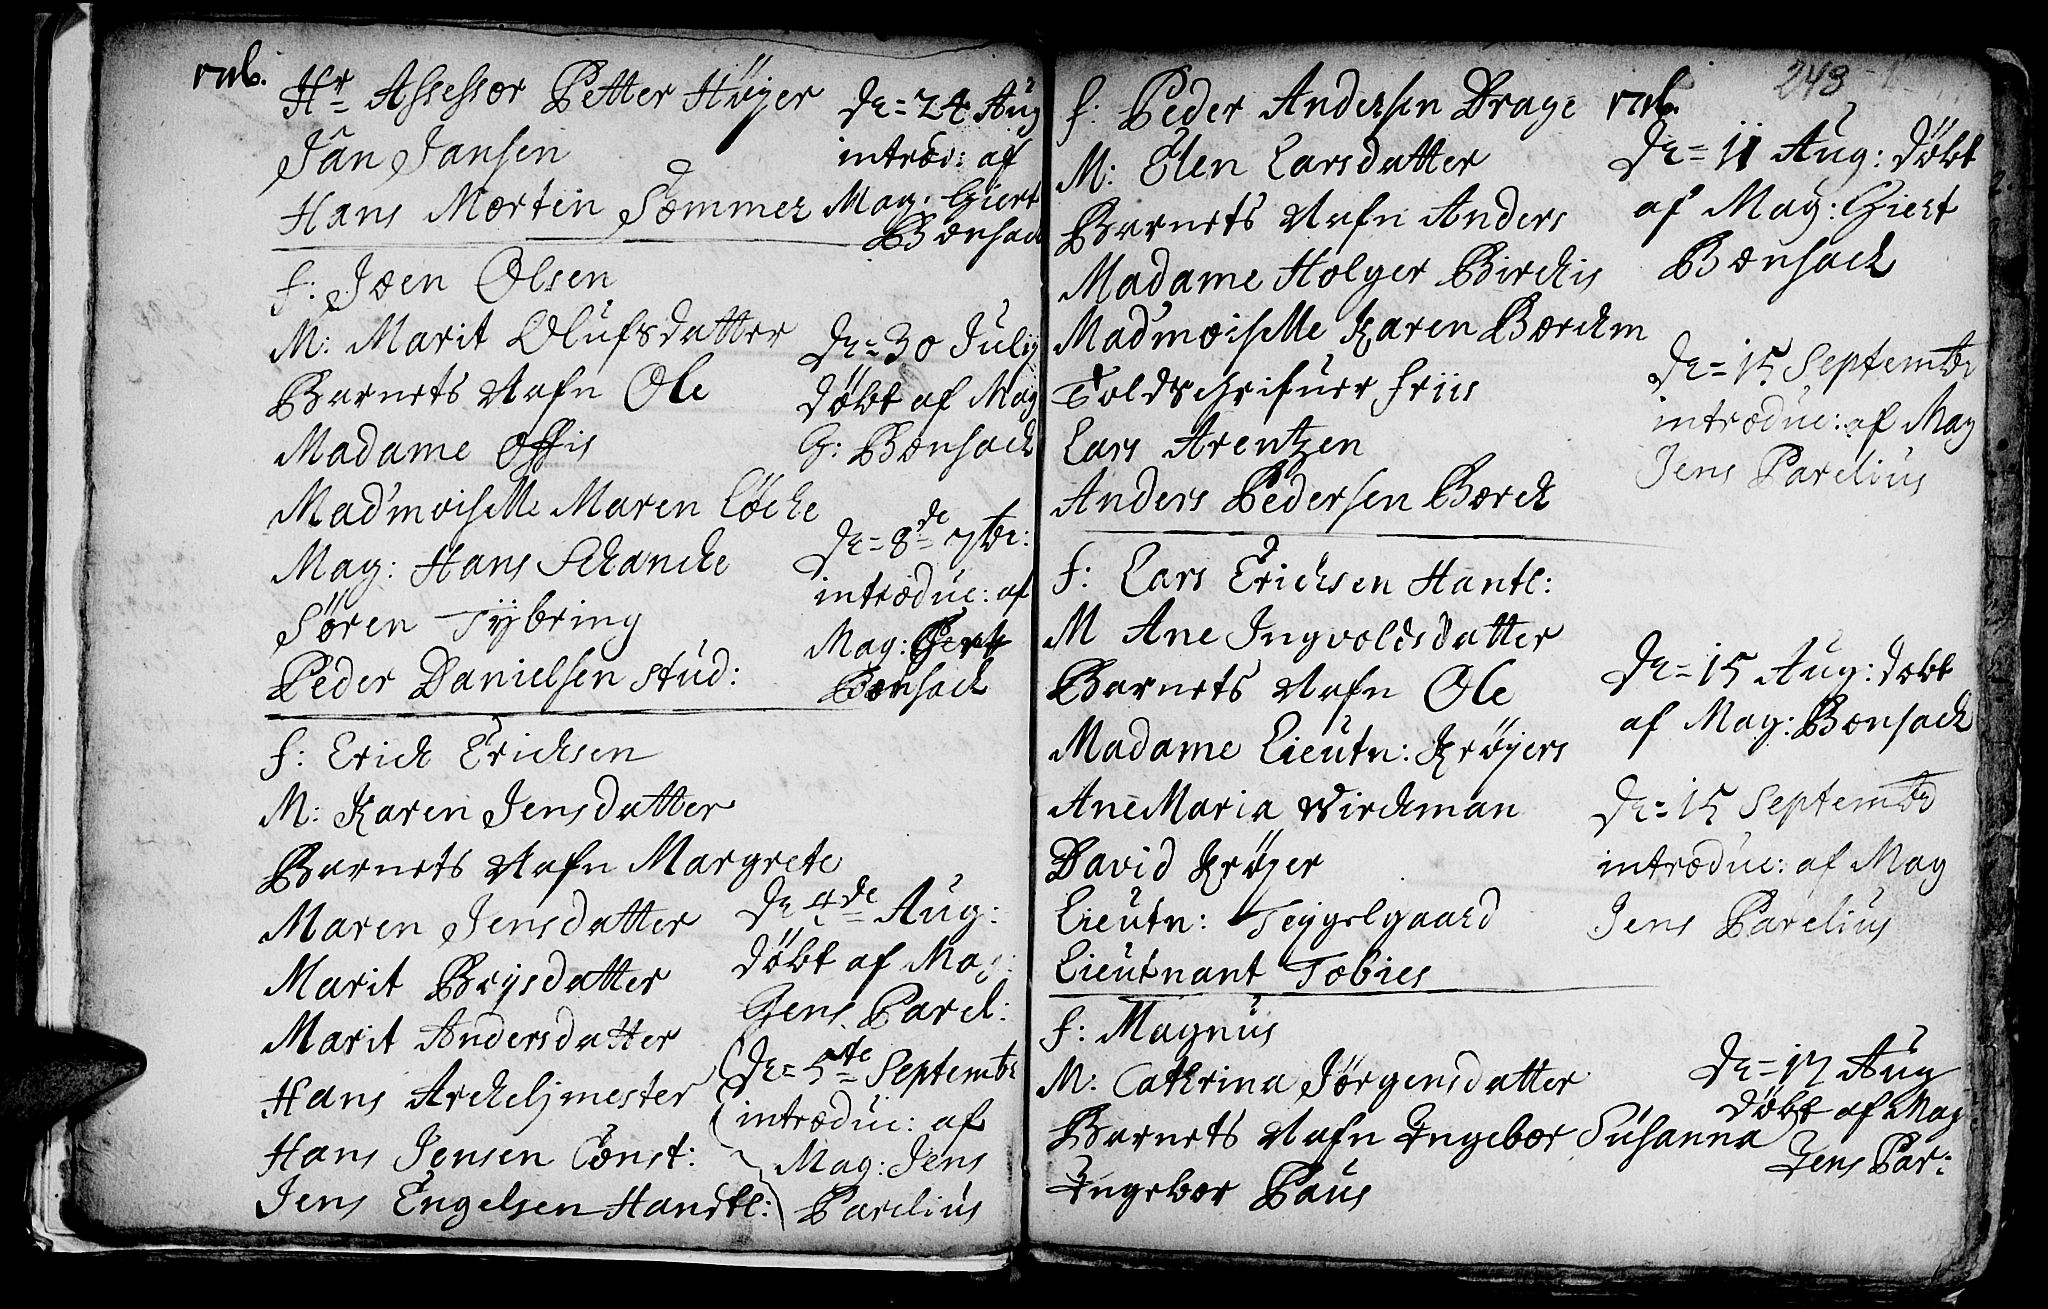 1716.
Hr Assessor Petter Höyer
Jan Jansen
Hans Mortin Sommer
Dn = 24 Aug
introd: af
Mag: Giert
Bonsach
f: Joen Olsen
M: Marit Olufsdatter
Barnets Nafn Ole
Madame Offis
Mad'moiselle Maren Löcke
Mag: Hans Schancke
Sören Tÿbring
Peder Danielsen stud:
Dn = 30 Julij
döbt af Mag
G: Bonsach
Dn = 8de 7br:
introduc: af
Mag: Gert
Bonsach
f: Erich Erichsen
M: Karen Jensdatter
Barnets Nafn Margrete
Maren Jensdatter
Marit Brÿsdatter
Marit Andersdatter
Hans Archelijmester
Hans Jensen Const:
Jens Engelsen Handtl:
Dn 4de Aug:
döbt af Mag:
Jens Parel:
Dn = 5te Septembr
introduc: af
Mag: Jens
Parelius
243
f: Peder Andersen Drage
M: Elen Larsdatter
Barnets Nafn Anders
Madame Holger Birchis
Mad'moiselle Karen Borchm
Toldschrifuer Friis
Lars Arentzen
Anders Pedersen Borch
1716.
Dn = 11 Aug: döbt
af Mag: Giert
Bonsach
Dn = 15 Septembr
introduc: af Mag
Jens Parelius
f: Lars Erichsen Hantl:
M Ane Ingvoldsdatter
Barnets Nafn Ole
Madame Lieutn: Kröyers
Ane Maria Wirchman
David Kröyer
Lieutn: Teygelgaard
Lieutnant Tobies
Dn = 15 Aug: döbt
af Mag: Bonsach
Dn = 15 Septembr
introduc: af Mag
Jens Parelius
f: Magnus
M: Cathrina Jörgensdatter
Barnets Nafn Ingebor Susanna
Ingebor Paus
Dn = 17 Aug
döbt af Mag
Jens Par: